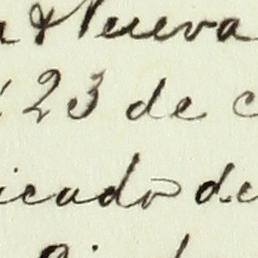 a & Nueva
23 de c
icado de